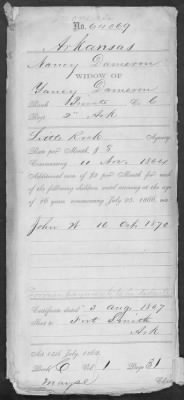 No. 64069
Arkansas
Nancy Dameron
WIDOW OF
Yancy Dameron
Rank Private Co. C
Regt. 2" Ark
Little Rock Agency
Rate per Month, $ 8
Commencing 11 Nov 1864
Additional sum of $2 per Month for each
of the following children until arriving at the age
of 16 years, commencing July 25, 1866, viz:
John W 16 Oct. 1870
Certificate dated 3 Aug 1867
Sent to Fort Smith
Ark
Act 14th July, 1862.
Book C Vol. 1 Page 31
Clerk